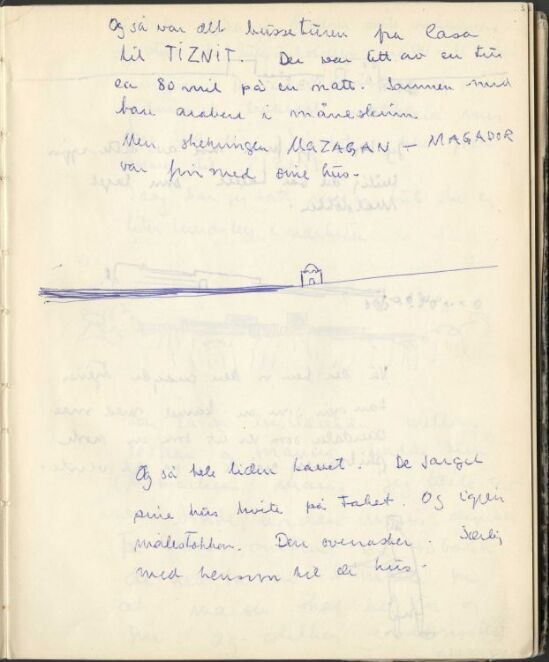 Og så var det bussturen fra Casa
til TIZNIT. Der var litt av en tur
ca 80 mil på en natt. Sammen med
bare arabere i måneskinn.
Men strekningen MAZAGAN – MAGADOR
var fin med sine hus.
Og så hele tiden havet. De
sine hus hvite på taket. Og igjen
målestokken. Den overrasker. Særlig
med hensyn til de hus.